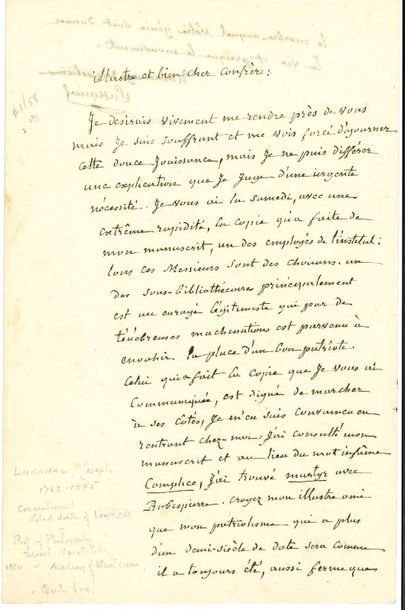 illustre et bien cher Confrère:
#1/58
Je desirois vivement me rendre près de vous
mais Je suis souffrant et me vois forcé d'ajourner
cette douce Jouissance, mais Je ne puis différer
une explication que Je Juge d'une urgente
nécessité. Je vous ai lu samedi, avec une
extrême rapidité, la copie qu'a faite de
mon manuscrit, un des employés de l'institut:
tous ces Messieurs sont des chouans. un
des sous-bibliothécaires principalement
est un enragé légitimiste qui par de
ténébreuses machinations est parvenu à
envahir la place d'un bon patriote.
Celui qui a fait la copie que Je vous ai
Communiquée, est digne de marcher
à ses côtés, Je m'en suis convaincu en
rentrant chez moi. J'ai consulté mon
manuscrit et au lieu du mot infâme
Complice, J'ai trouvé martyr avec
Robespierre. croyez mon illustre ami
que mon patriotisme qui a plus
d'un demi-siècle de date sera comme
il a toujours été, aussi ferme que
LAKANAL Joseph
1762-1845
Conventionnel
Voted death of Louis XVI
Prof. of Philosophy